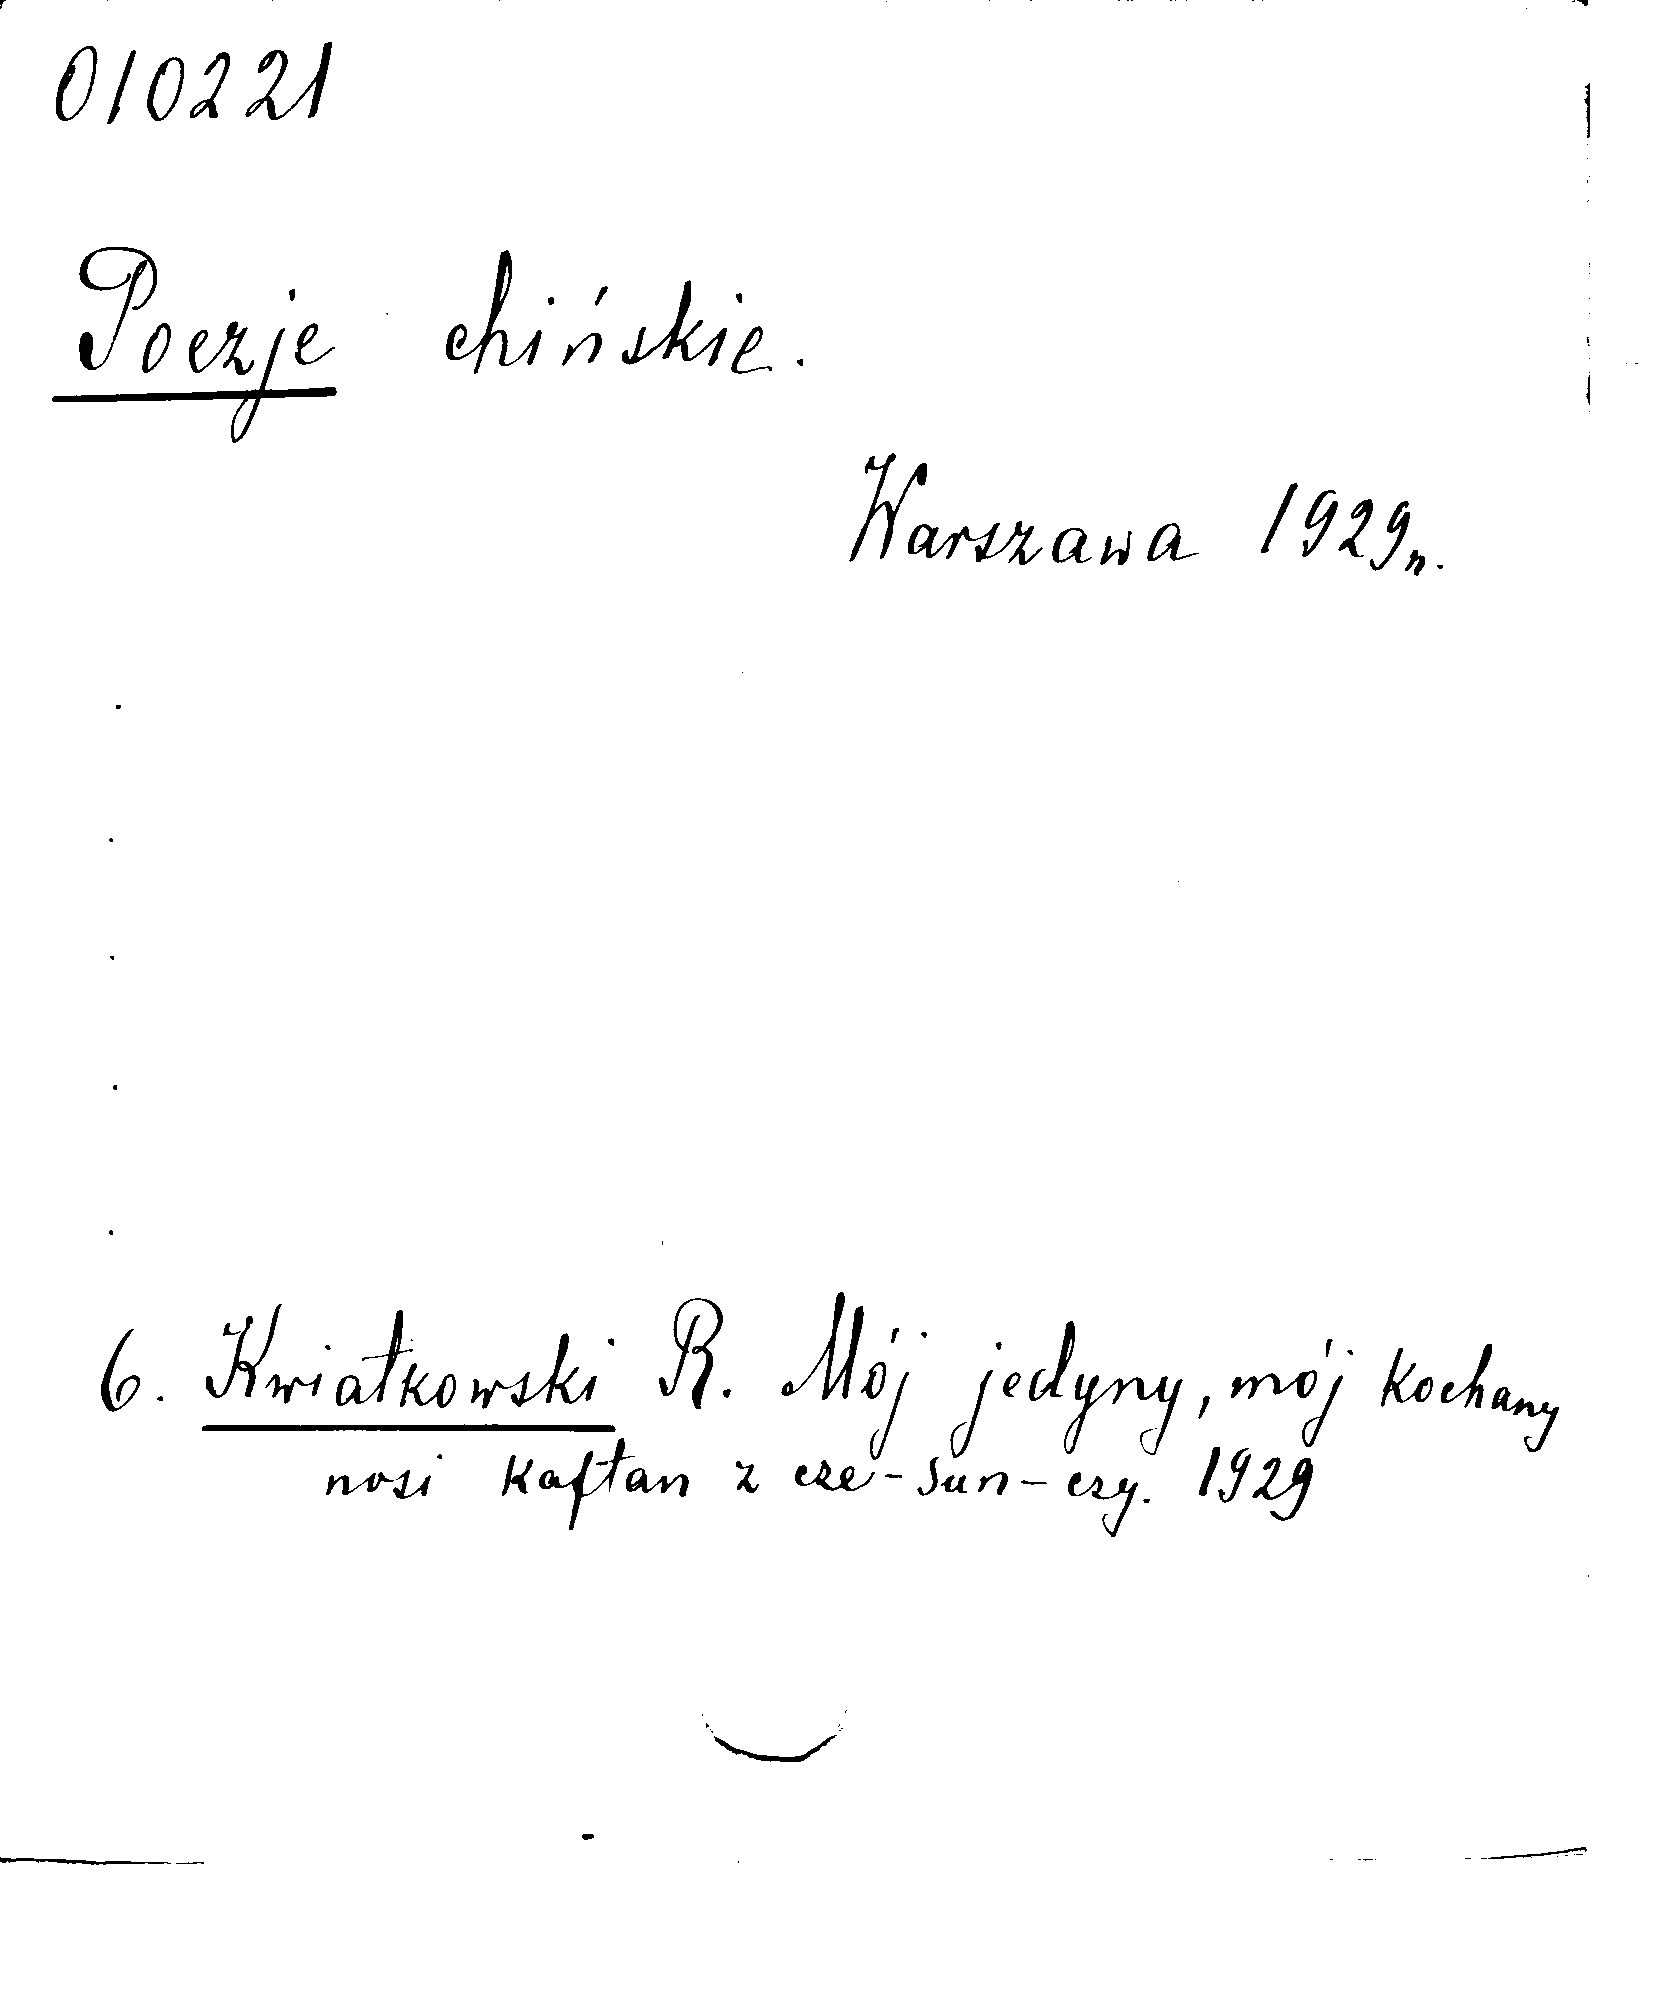 010221
Poezje chińskie.
Warszawa 1929r.
6. Kwiatkowski R. Mój jedyny, mój kochany
nosi kaftan z cze-sun-czy. 1929